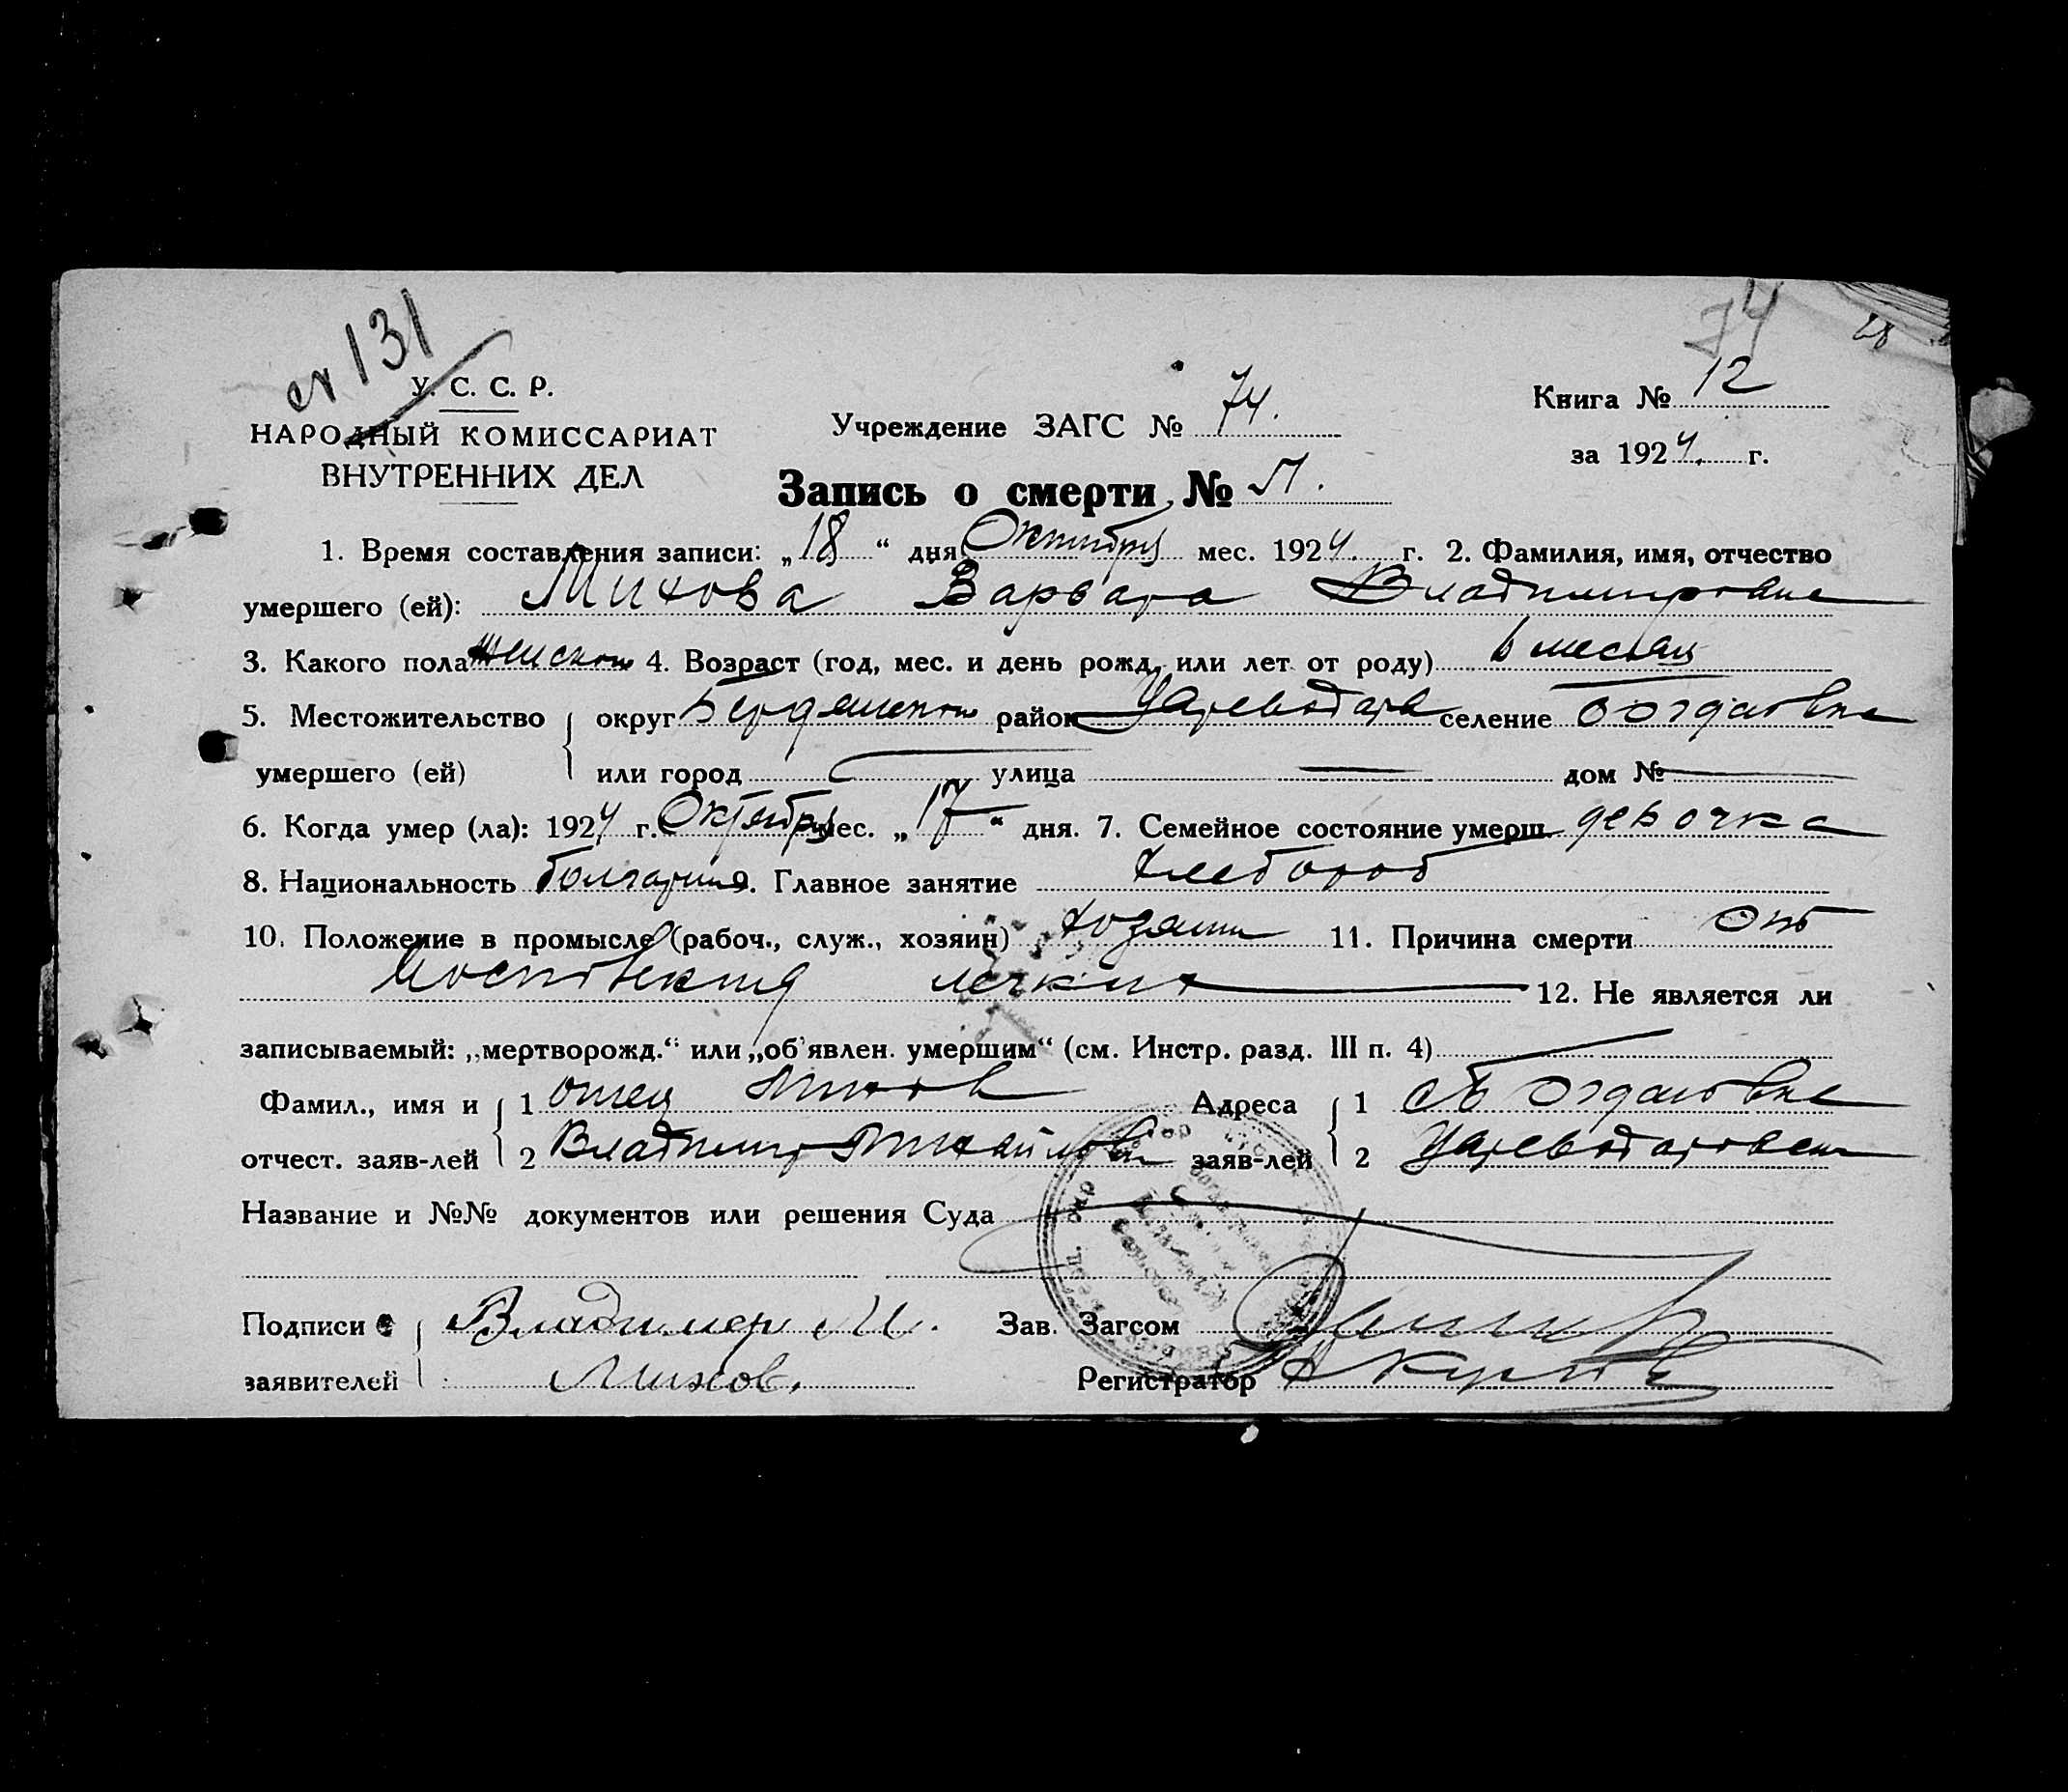 № 131
74
28
У. С. С. Р.
НАРОДНЫЙ КОМИССАРИАТ
ВНУТРЕННИХ ДЕЛ
Учреждение ЗАГС № 74.
Книга № 12
за 1924. г.
Запись о смерти №
1. Время составления записи: „18“ дня Октября мес. 1924. г. 2. Фамилия, имя, отчество
умершего (ей): Михова Варвара Владимировна
3. Какого пола женского 4. Возраст (год, мес. и день рожд. или лет от роду) 6 месяц
5. Местожительство округ Бердянский район Цареводар селение Богдановке
умершего (ей) или город — улица — дом № —
6. Когда умер (ла): 1924 г. Октября мес. „17“ дня. 7. Семейное состояние умерш. девочка
8. Национальность болгарин 9. Главное занятие хлебороб
10. Положение в промысле (рабоч., служ., хозяин) хозяин 11. Причина смерти от
легких 12. Не является ли
записываемый: „мертворожд.“ или „об'явлен. умершим“ (см. Инстр. разд. III п. 4) —
Фамил., имя и 1 отец Михов Адреса 1 с Богдановке
отчест. заяв-лей 2 Владимир Михайлов заяв-лей 2
Название и №№ документов или решения Суда
Подписи Владимер М. Зав. Загсом
заявителей Михов. Регистратор